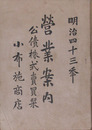 明治四十三季
營業案內
公債株式賣買業
小布施商店